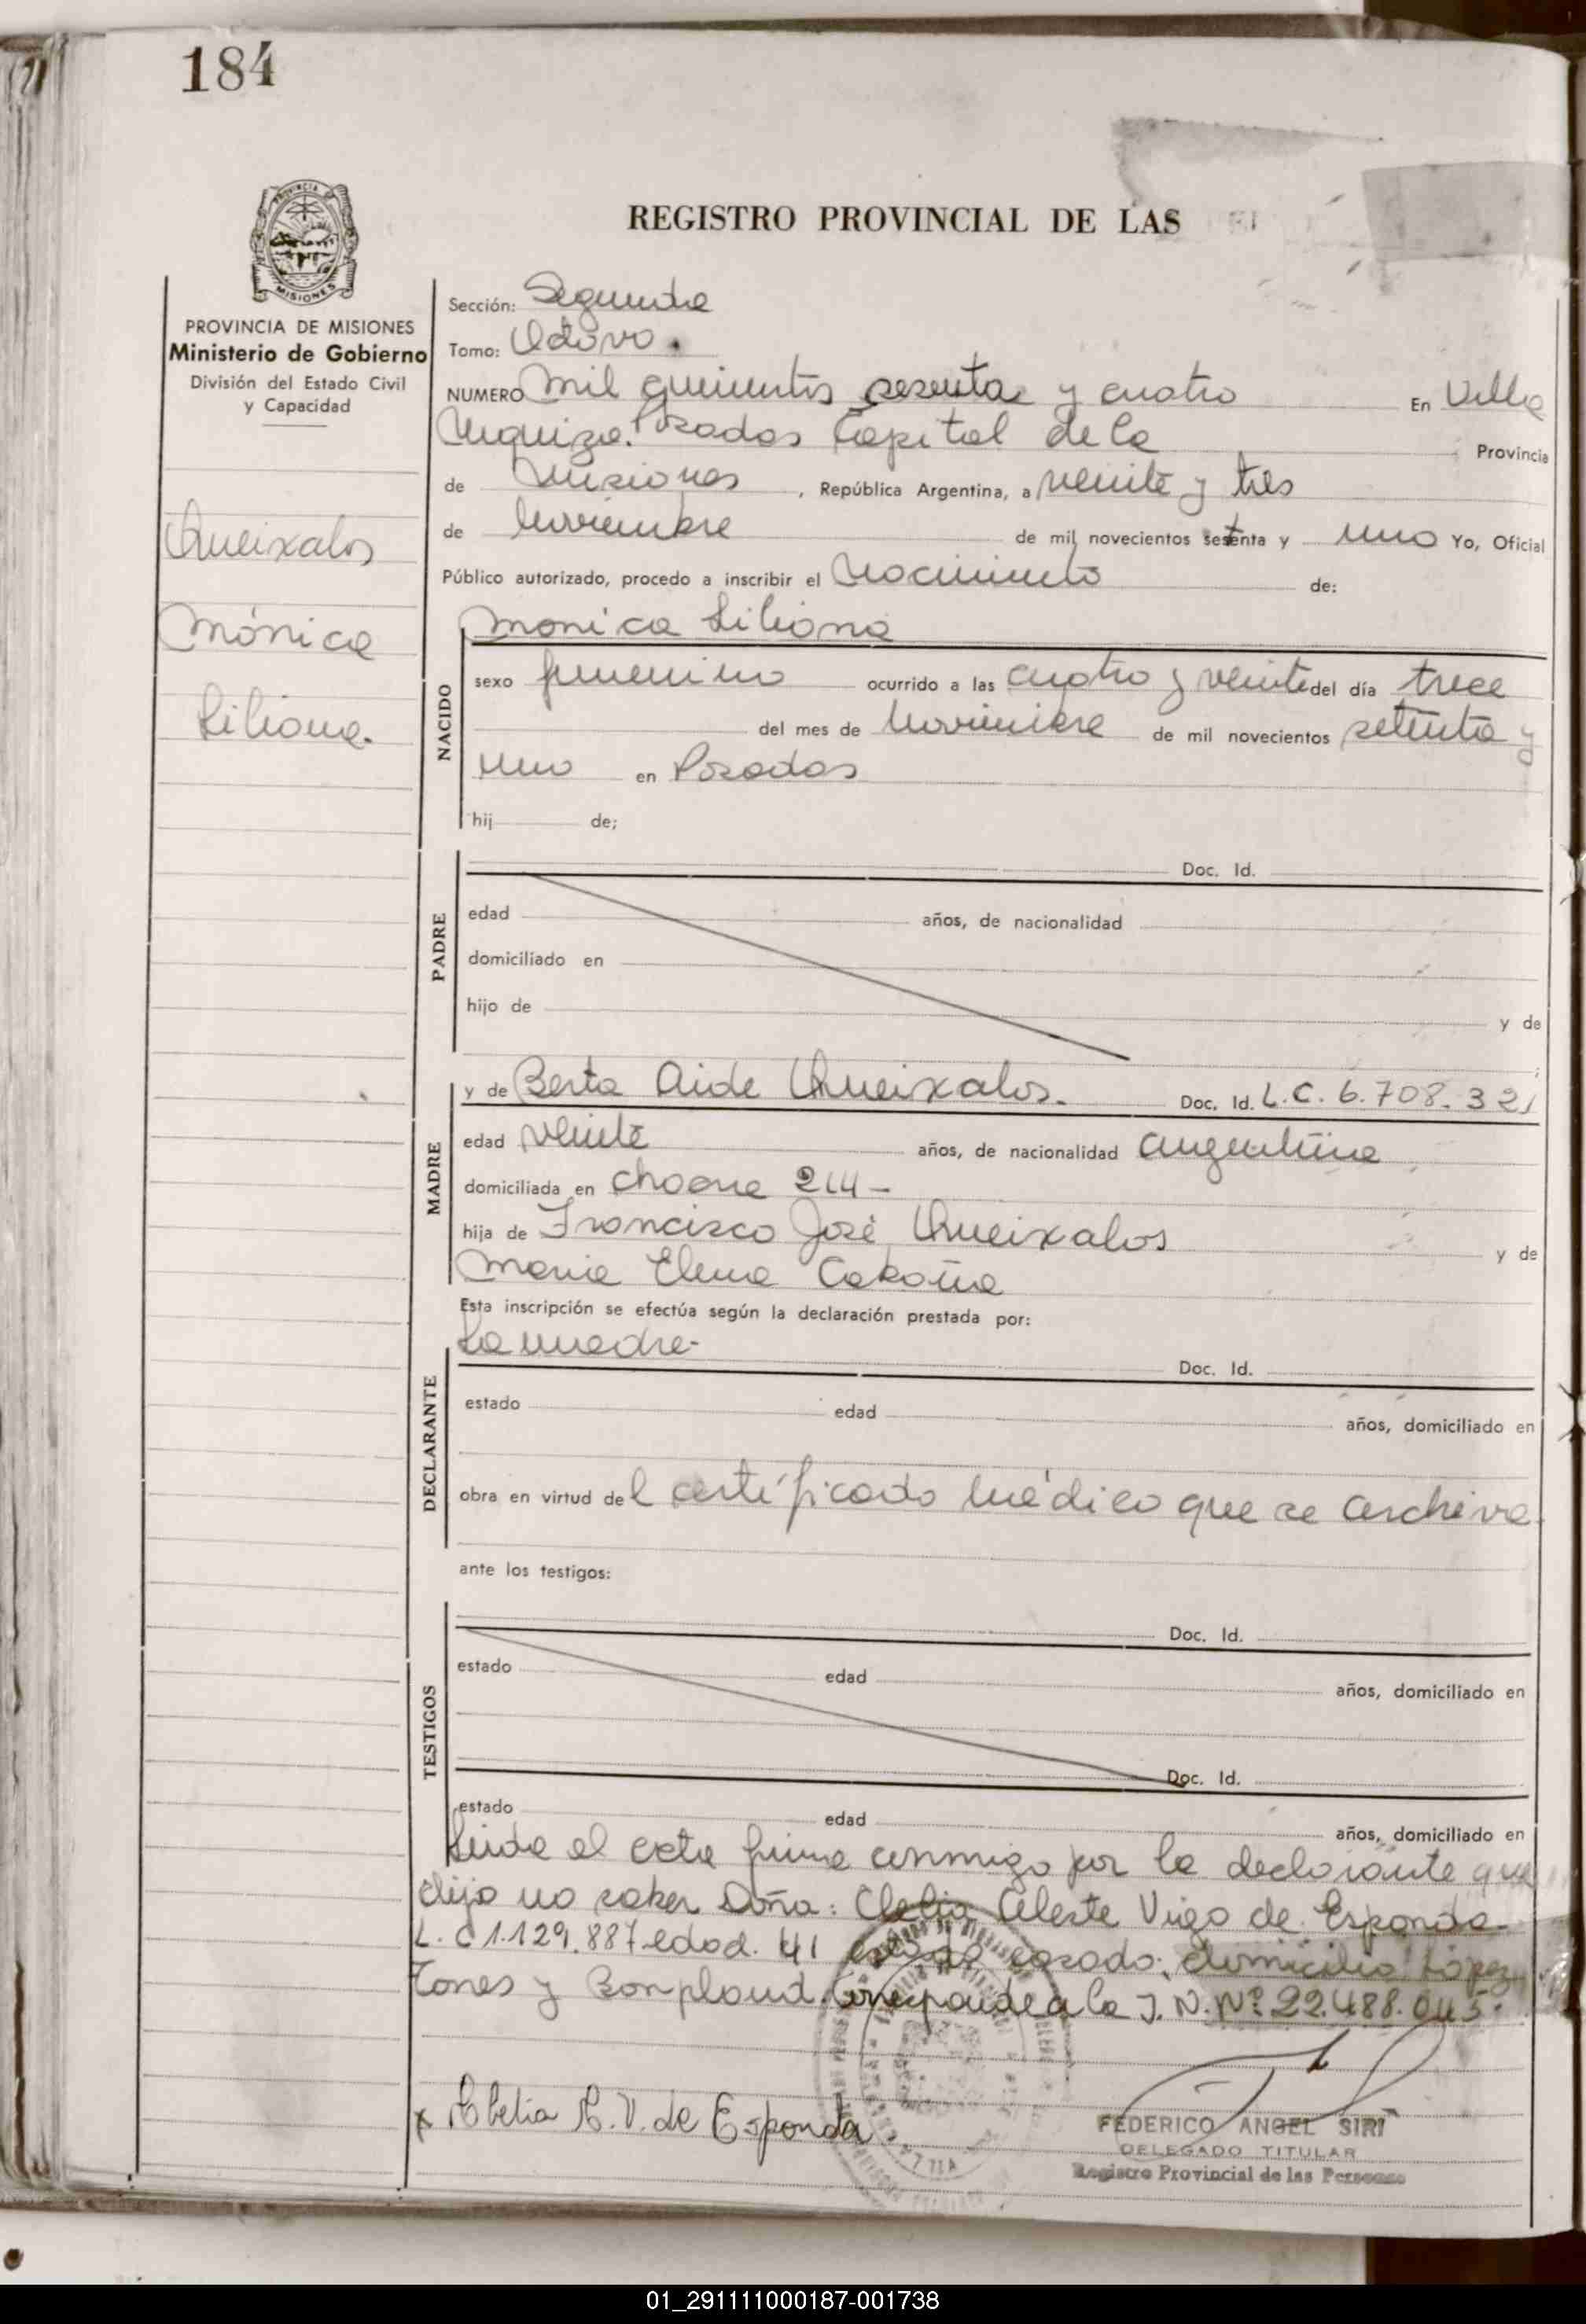 184
PROVINCIA DE MISIONES
Ministerio de Gobierno
División del Estado Civil
y Capacidad
Queixalos
Mónica
Liliana.
REGISTRO PROVINCIAL DE LAS
Sección: Segunda
Tomo: Octavo.
NUMERO Mil quinientos sesenta y cuatro En Villa
Urquiza. Posadas Capital de la Provincia
de Misiones, República Argentina, a veinte y tres
de Noviembre de mil novecientos setenta y uno Yo, Oficial
Público autorizado, procedo a inscribir el Nacimiento de:
Monica Liliana
NACIDO
sexo femenino ocurrido a las cuatro y veinte del día trece
del mes de Noviembre de mil novecientos setenta y
uno en Posadas
hij de;
PADRE
Doc. Id.
edad años, de nacionalidad
domiciliado en
hijo de y de
MADRE
y de Berta Aide Queixalos. Doc. Id. L.C. 6.708.321
edad veinte años, de nacionalidad argentina
domiciliada en Choane 214 -
hija de Francisco José Queixalos y de
Maria Elena
Esta inscripción se efectúa según la declaración prestada por:
La madre-
DECLARANTE
Doc. Id.
estado edad años, domiciliado en
obra en virtud del certificado médico que se archiva.
ante los testigos:
TESTIGOS
Doc. Id.
estado edad años, domiciliado en
Doc. Id.
estado edad años, domiciliado en
Leida el acta firma conmigo por la declarante que
dijo no saber Doña: Clelia Celeste Vigo de Esponda.
L. C 1.129.887 edad. 41 estado casado. domicilio López
Torres y Bonpland. Corresponde a la I. N. Nº 22.488.045.
x Clelia C. V. de Esponda.
FEDERICO ANGEL SIRI
DELEGADO TITULAR
Registro Provincial de las Personas
01_291111000187-001738